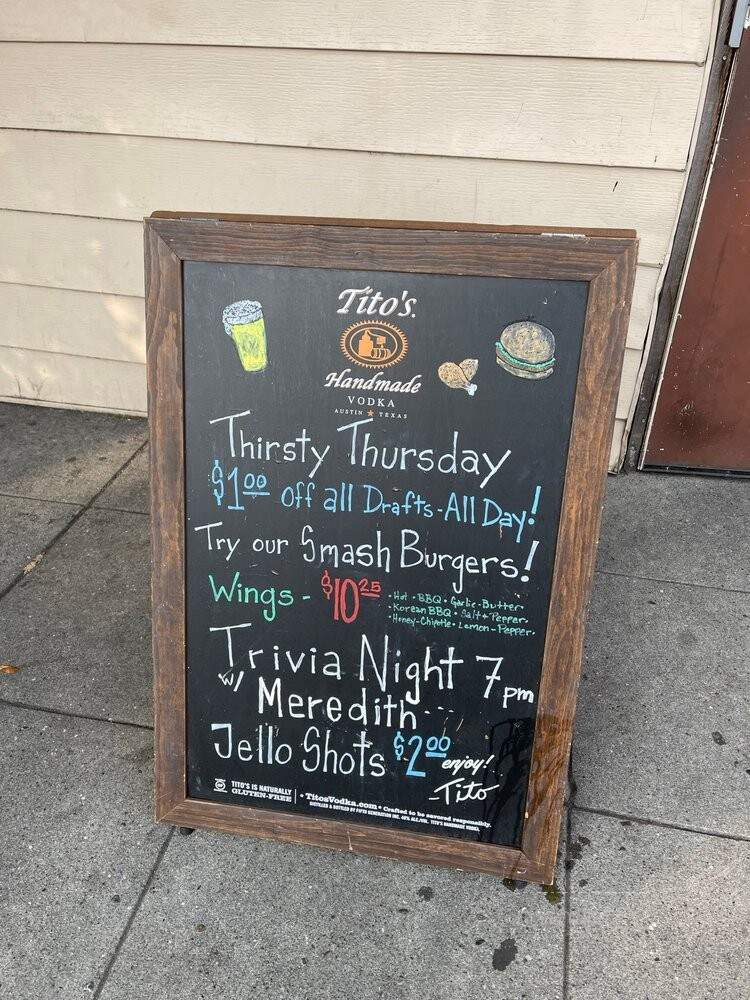 Tito's
Handmade
VODKA
AUSTIN ★ TEXAS
Thirsty Thursday
$1.00 off all Drafts - All Day!
Try our Smash Burgers!
Wings - $10.25
• Hot • BBQ • Garlic-Butter
• Korean BBQ • Salt + Pepper
• Honey-Chipotle • Lemon-Pepper
Trivia Night 7pm
w/ Meredith...
Jello Shots $2.00 enjoy!
-Tito
TITO'S IS NATURALLY
GLUTEN-FREE
• TitosVodka.com • Crafted to be savored responsibly.
DISTILLED & BOTTLED BY FIFTH GENERATION INC. 40% ALC./VOL. TITO'S HANDMADE VODKA.